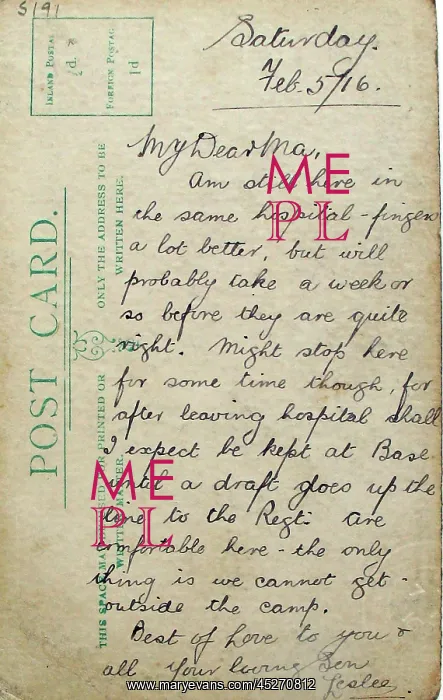 5191
INLAND POSTAGE ½d.
FOREIGN POSTAGE 1d
POST CARD.
ONLY THE ADDRESS TO BE
WRITTEN HERE.
THIS SPACE MAY BE USED FOR PRINTED OR
WRITTEN MATTER.
Saturday.
Feb. 5/16.
My Dear Ma,
Am still here in
the same hospital - fingers
a lot better, but will
probably take a week or
so before they are quite
right. Might stop here
for some time though, for
after leaving hospital shall
I expect be kept at Base
until a draft goes up the
line to the Regt. Are
comfortable here - the only
thing is we cannot get -
outside the camp.
Best of Love to you &
all Your loving Son
Leslie.
ME
PL
ME
PL
www.maryevans.com/45270812